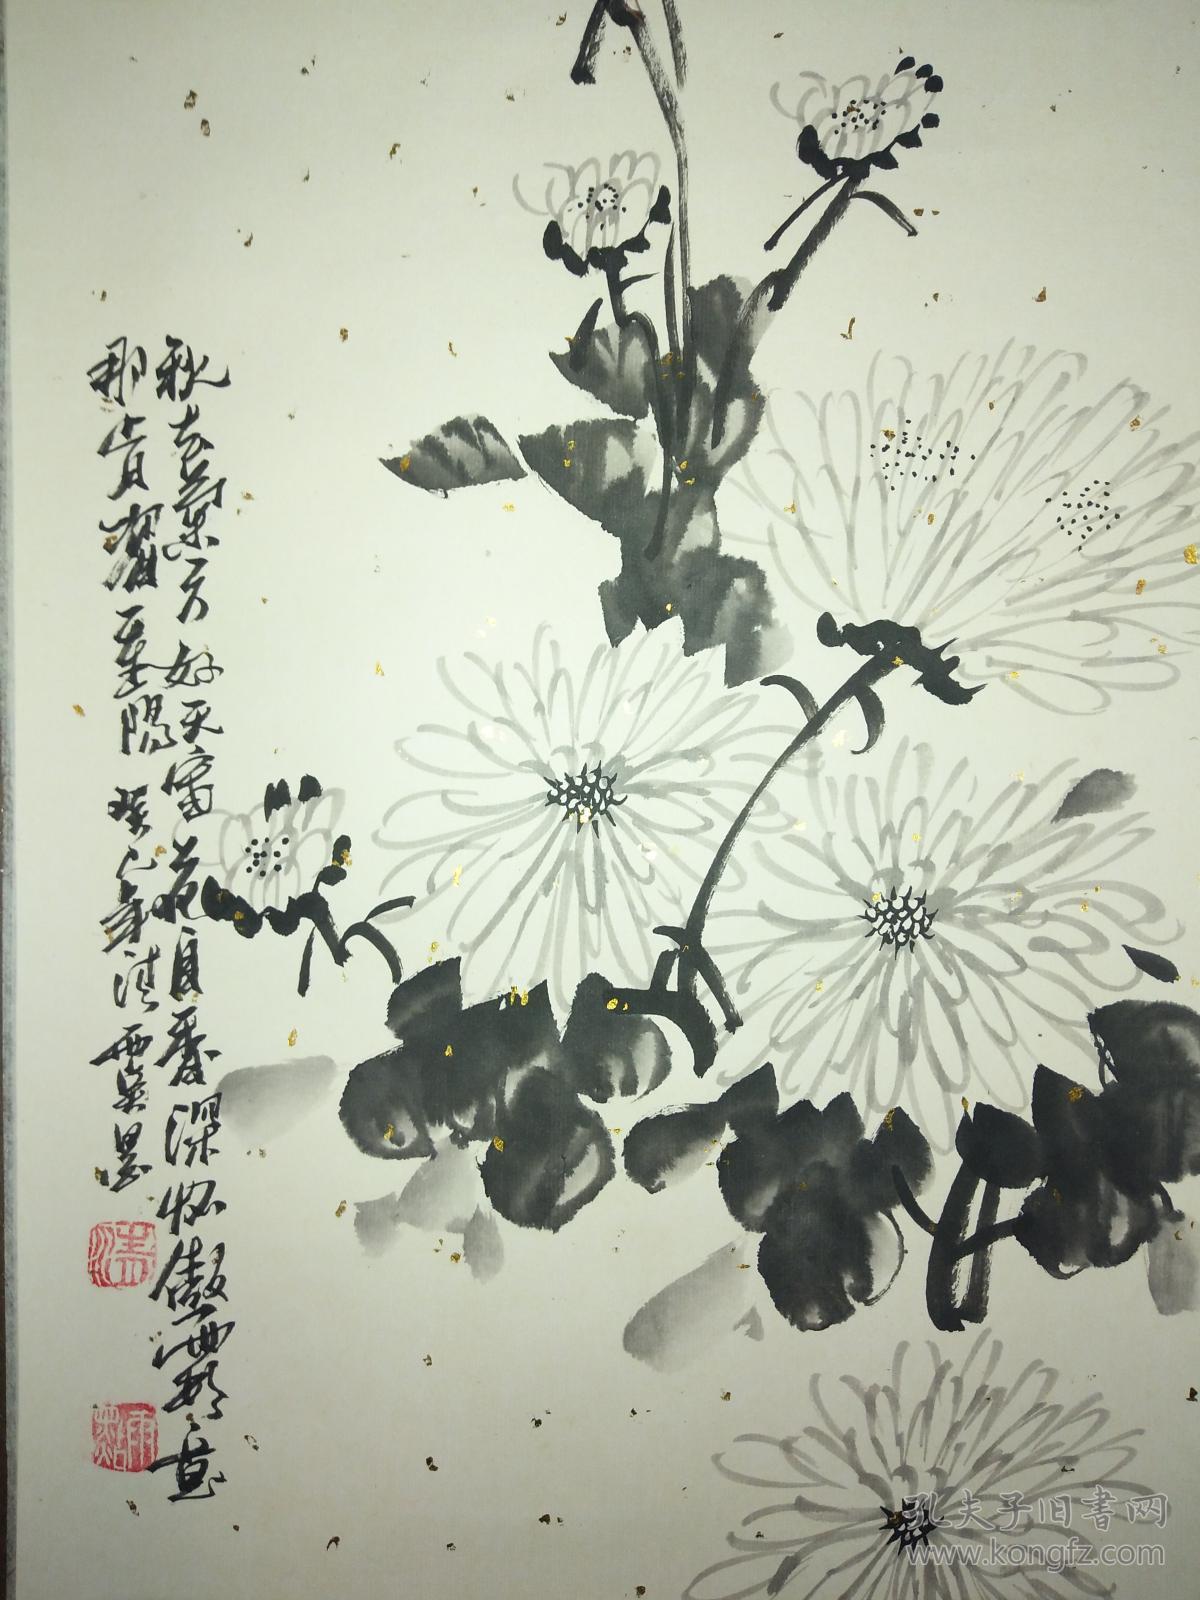 秋去叶方好天寄花自香深怀傲霜意
那肯媚重阳癸巳年洪雨英墨
孔夫子旧书网
www.kongfz.com